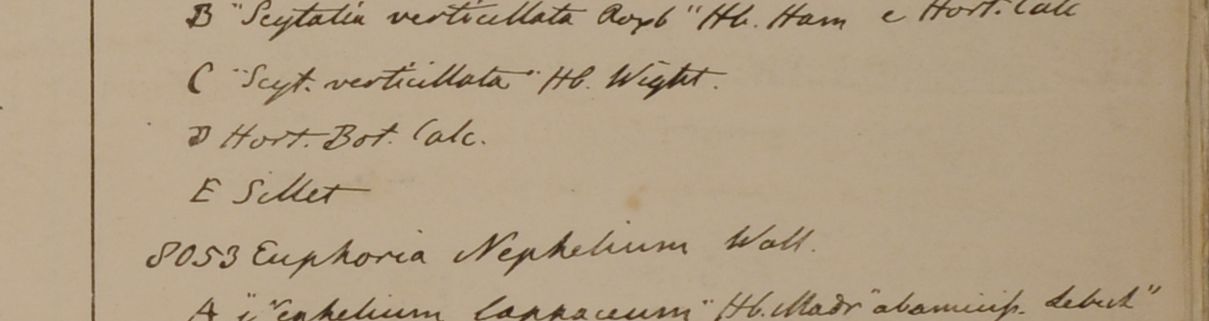 B "Scytalia verticillata Roxb" Hb. Ham e Hort. Calc
C "Scyt. verticillata" Hb. Wight.
D Hort. Bot. Calc.
E Sillet
8053 Euphoria Nephelium Wall.
A "Nephelium lappaceum" Hb. Madr